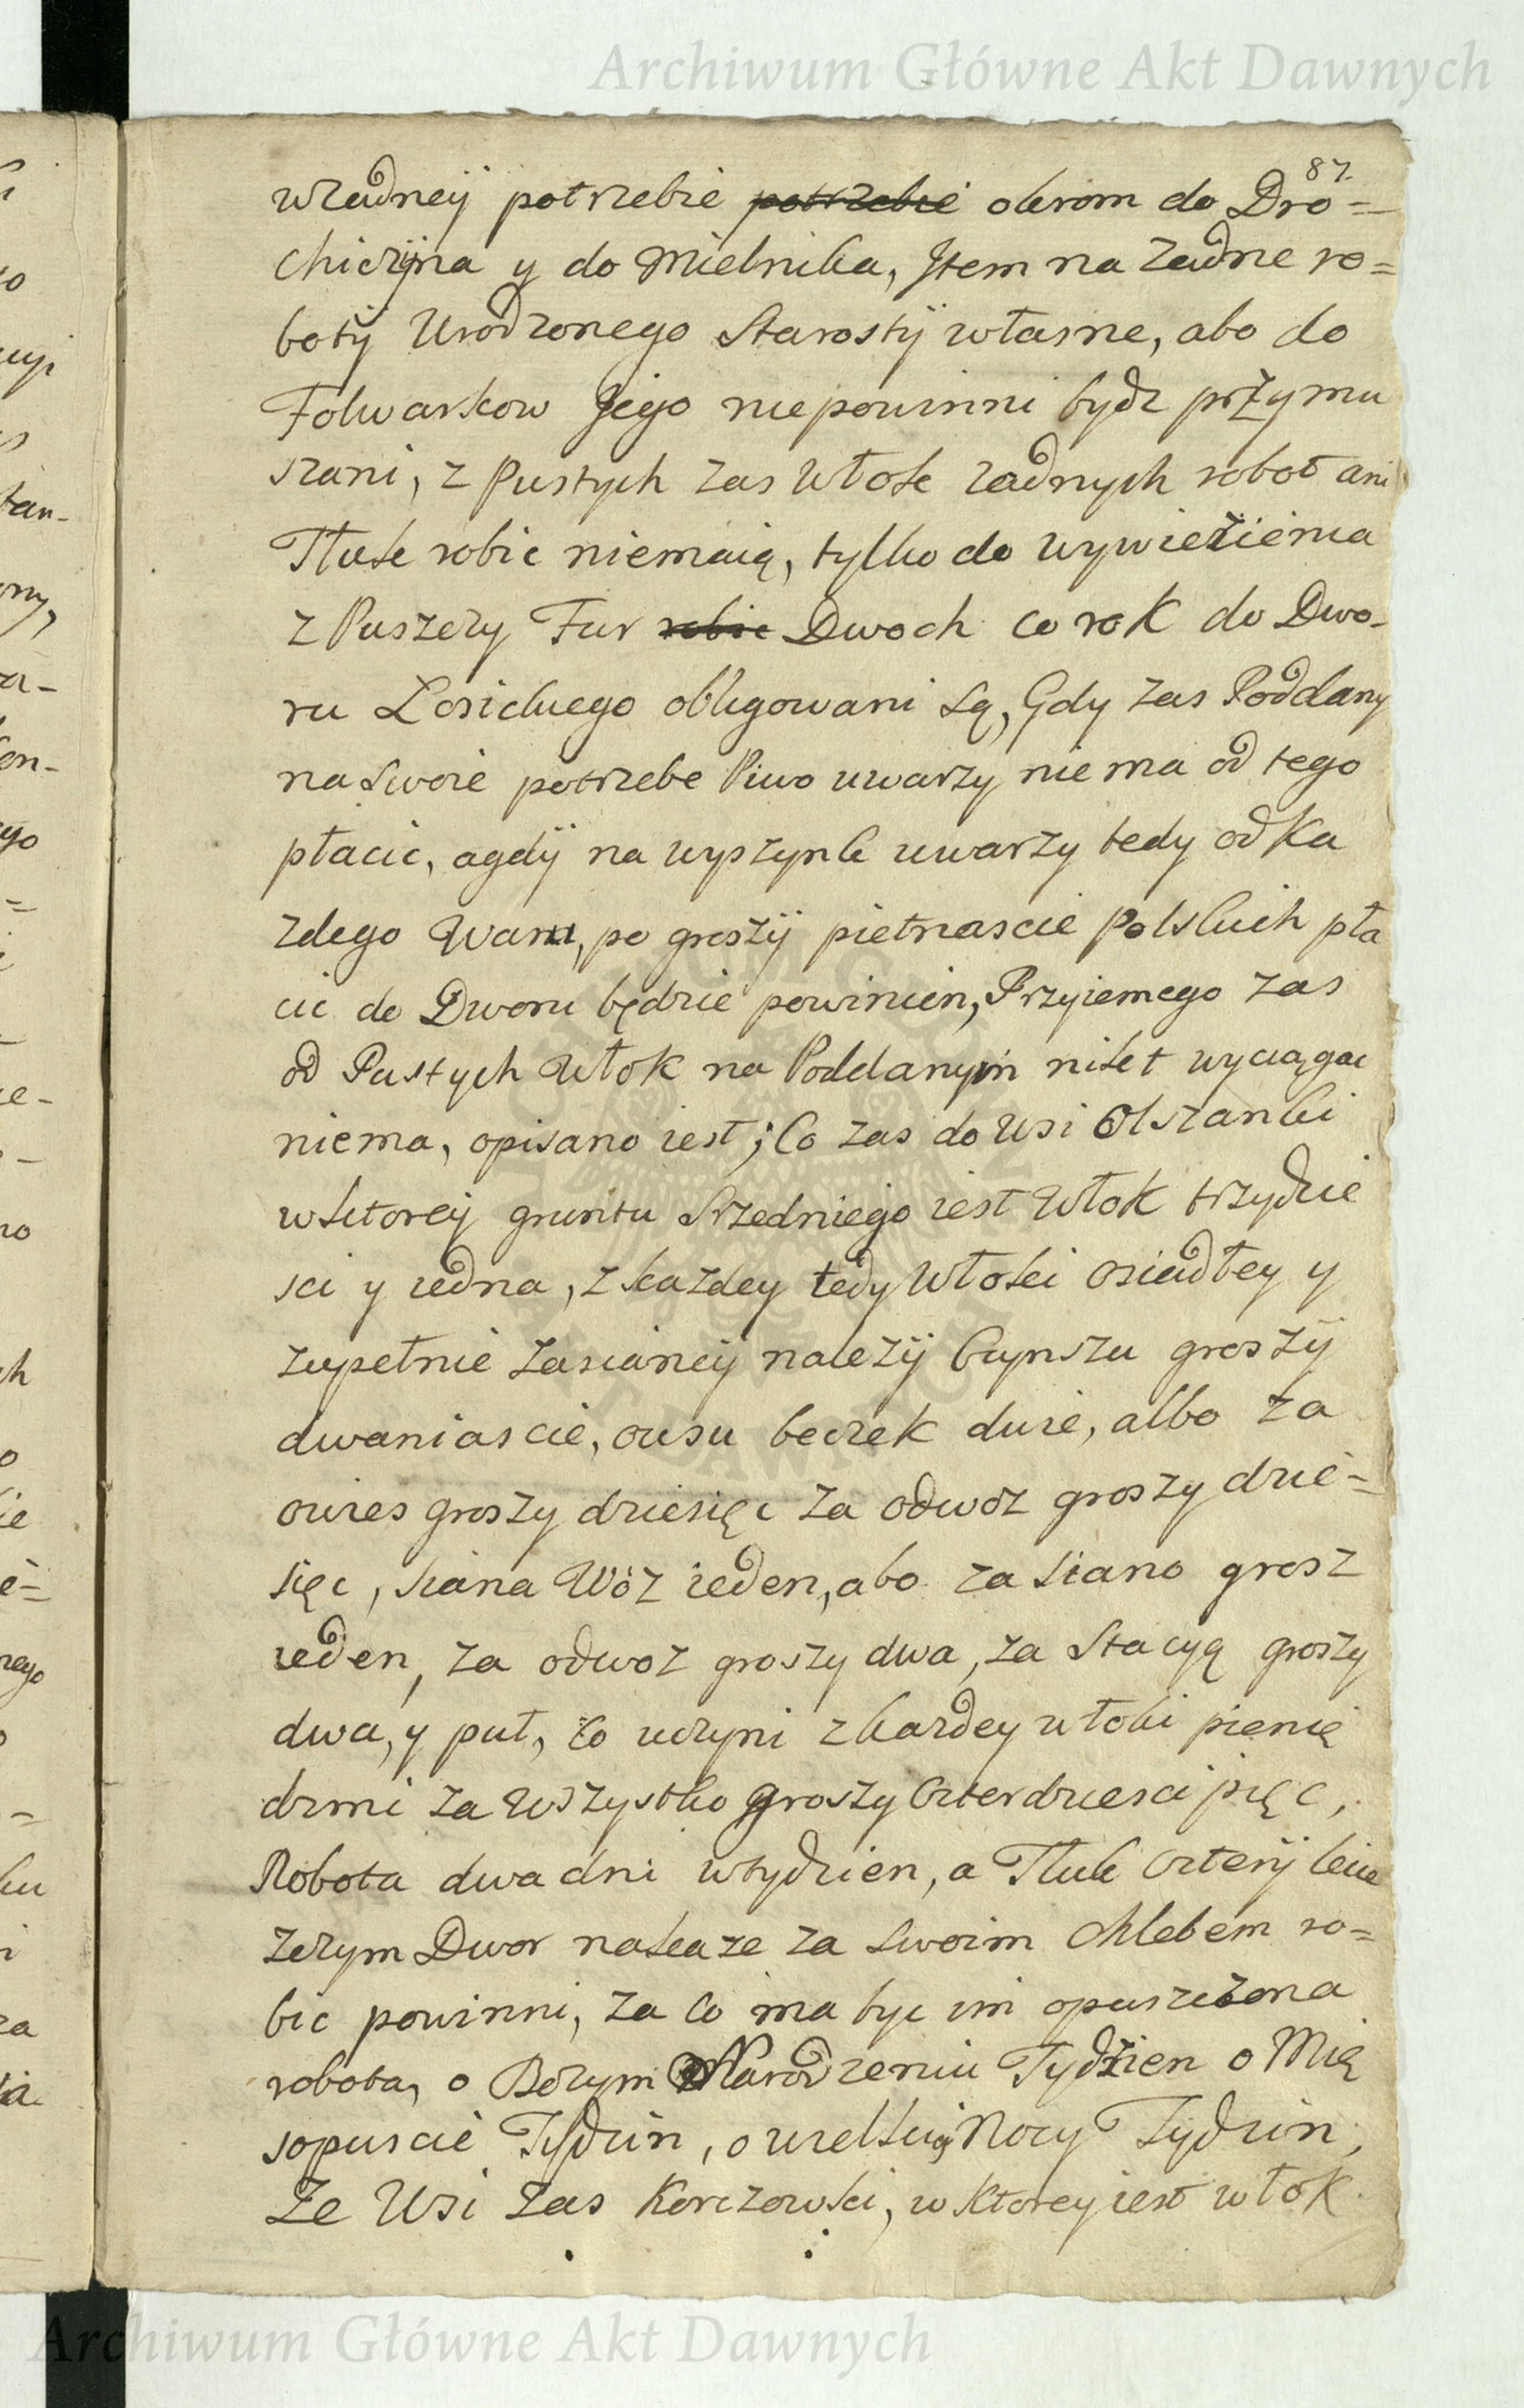 Archiwum Główne Akt Dawnych
87.
wzadneÿ potrzebie potrzebie okrom do Dro=
hiczÿna y do Mielnika, Item na zadne ro=
botÿ Urodzonego Starostÿ własne, abo do
Folwarkow Jego niepowinni bydz przymu
szani, z Pustych zas Włok zadnych robot ani
Tłuk robic niemaią, tylko do wywieżienia
z Puszczy Fur robic Dwoch co rok do Dwo-
ru Łosickiego obligowani są, Gdy zas Poddany
na swoie potrzebe Piwo uwarzy nie ma od tego
płacic, agdÿ na wyszynk uwarzy tedy od Ka
zdego Waru, po groszÿ pietnascie Polskich pła
cic do Dworu będzie powinien, Przyiemego zas
od Pustych Włok na Poddanym nikt wyciągac
niema, opisano iest; Co zas do Wsi Olszanki
wktoreÿ gruntu Srzedniego iest Włok trzydzie
sci y iedna, z kazdey tedy Włoki osiadłey y
zupełnie zasianeÿ należÿ Czynszu groszÿ
dwaniascie, owsu beczek dwie, albo za
owies groszy dziesięc za odwoz groszy dzie=
sięc, siana Wóz ieden, abo za siano grosz
ieden, za odwoz groszy dwa, za Stacyą groszy
dwa, y puł, co uczyni zkazdey włoki pienię
dzmi za wszystko groszy Czterdziesci pięc,
Robota dwa dni wtydzien, a Tłuk Czterÿ lecie
zczym Dwor nakaze za swoim chlebem ro=
bic powinni, za co ma byc im opuszczona
robota, o Bozym Narodzeniu Tydzien o Mię
sopuscie Tydzin, o wielkiej Nocy Tydzin,
Ze Wsi zas Korczowki, w Ktorey iest włok
Archiwum Główne Akt Dawnych